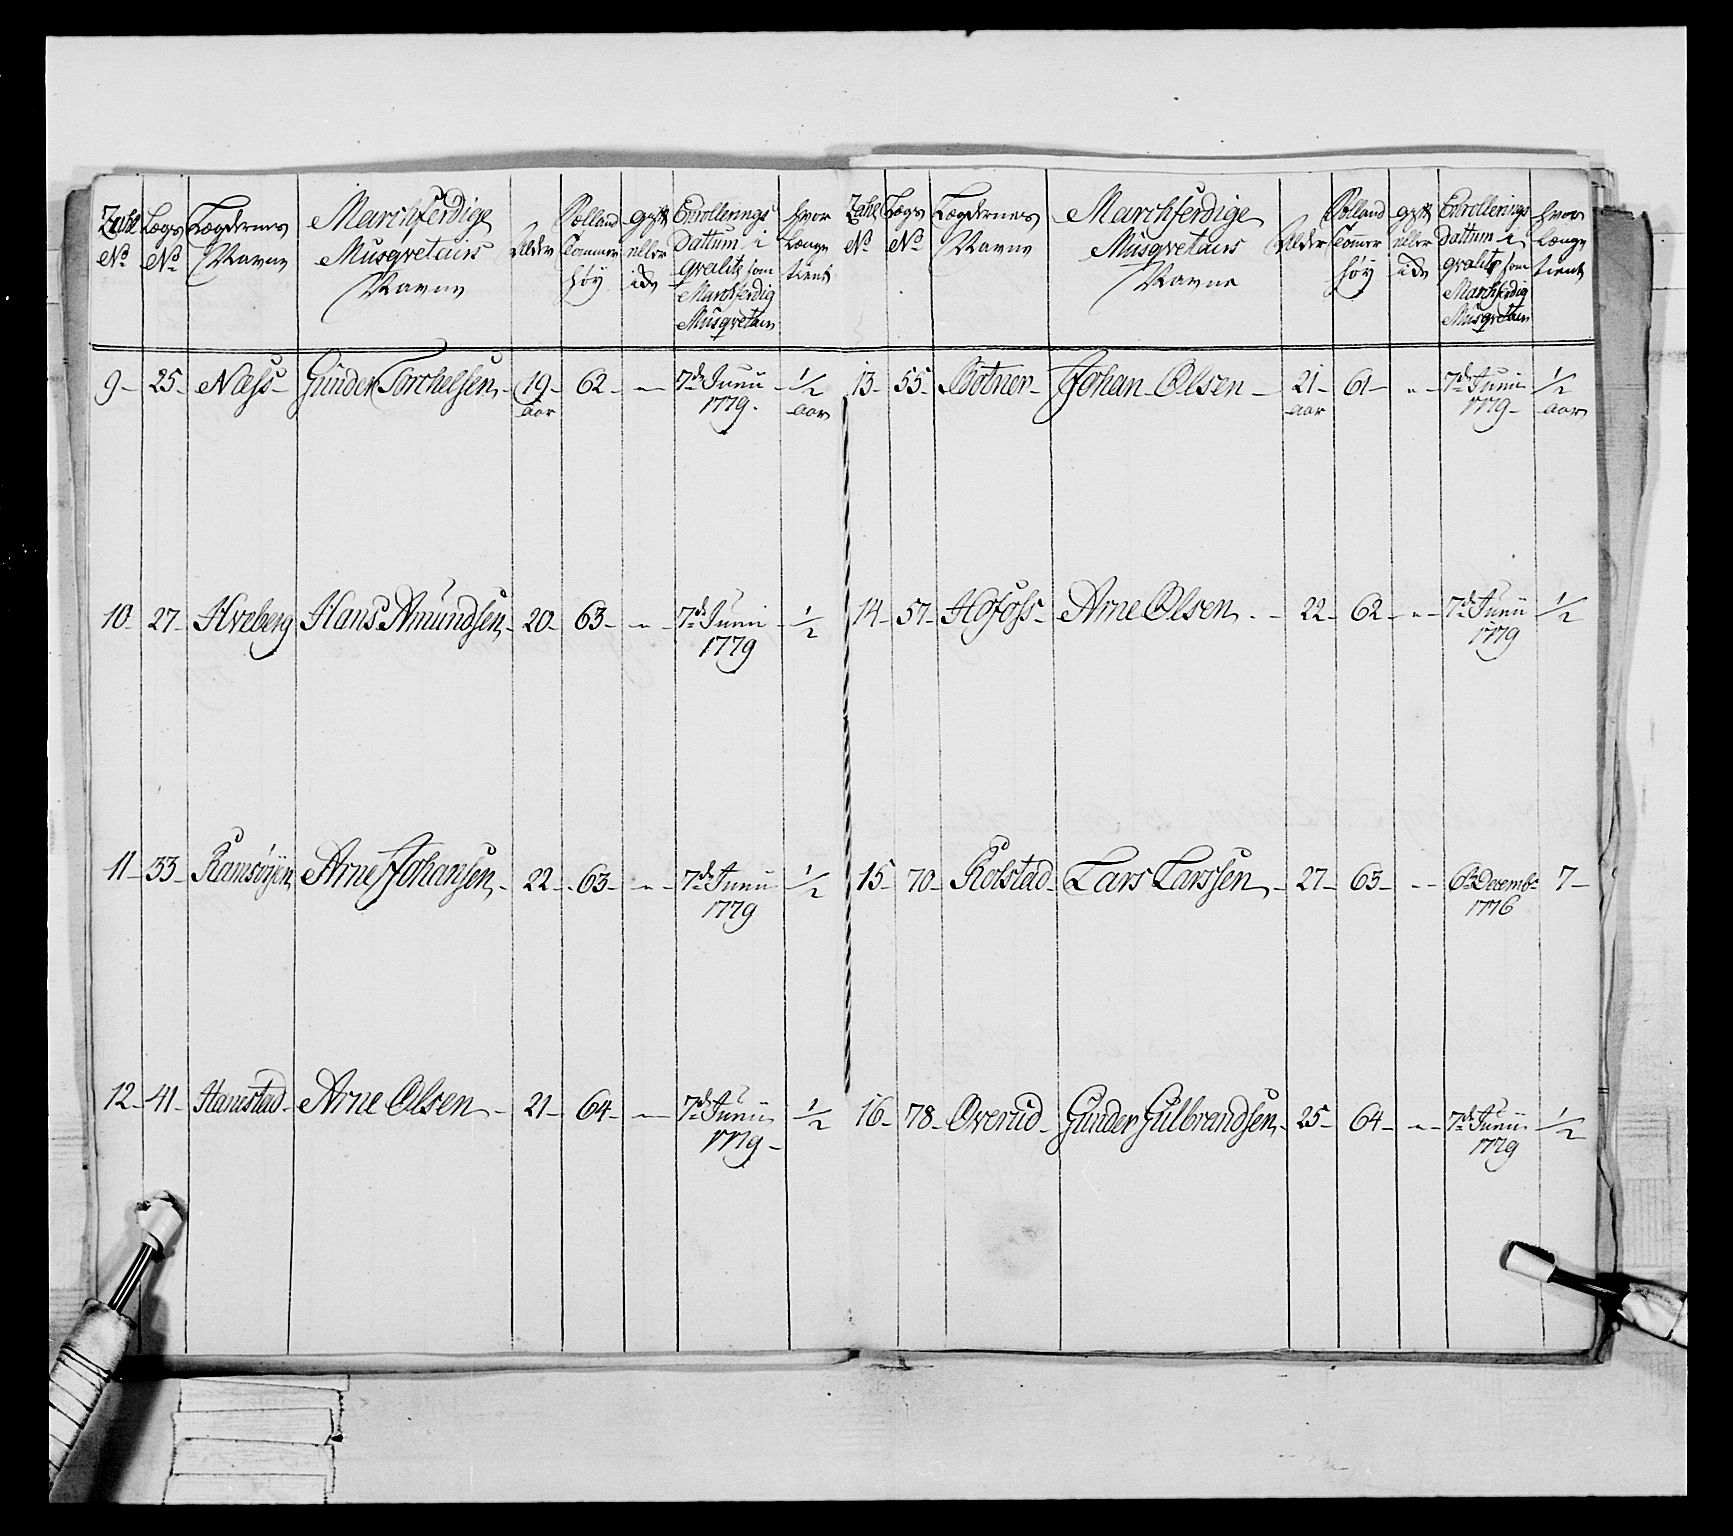 Zahl No | Lægs No | Lægdernes Navne | Marchferdige Musqvetairs Navne | Alder | Tolland Tommer høy | gift eller icke | Enrollerings Dattum i qvalite som Marchferdig Musqvetair | hvor længe tient
9 - 25 - Næss - Gunder Torchelsen - 19 aar - 62 - " - 7de Junii 1779 - 1/2 aar
10 - 27 - Hveberg Hans Amundsen - 20 - 63 - " - 7de Junii 1779 - 1/2
11 - 33 - Ramsøyen Arne Johansen - 22 - 63 - " - 7de Junii 1779 - 1/2
12 - 41 - Hanestad - Arne Olsen - 21 - 64 - " - 7de Junii 1779 - 1/2
Zahl No | Lægs No | Lægdernes Navne | Marchferdige Musqvetairs Navne | Alder | Tolland Tommer høy | gift eller icke | Enrollerings Dattum i qvalite som Marchferdig Musqvetair | hvor længe tient
13 - 55 - Botner - Johan Olsen - 21 aar - 61 - " - 7de Junii 1779 - 1/2 aar
14 - 57 - Hofoss - Arne Olsen - 22 - 62 - " - 7de Junii 1779 - 1/2
15 - 70 - Kolstad - Lars Larssen - 27 - 63 - " - Decembr 1776 7 -
16 - 78 - Overud - Gunder Gulbrandsen - 25 - 64 - " - 7de Junii 1779 - 1/2